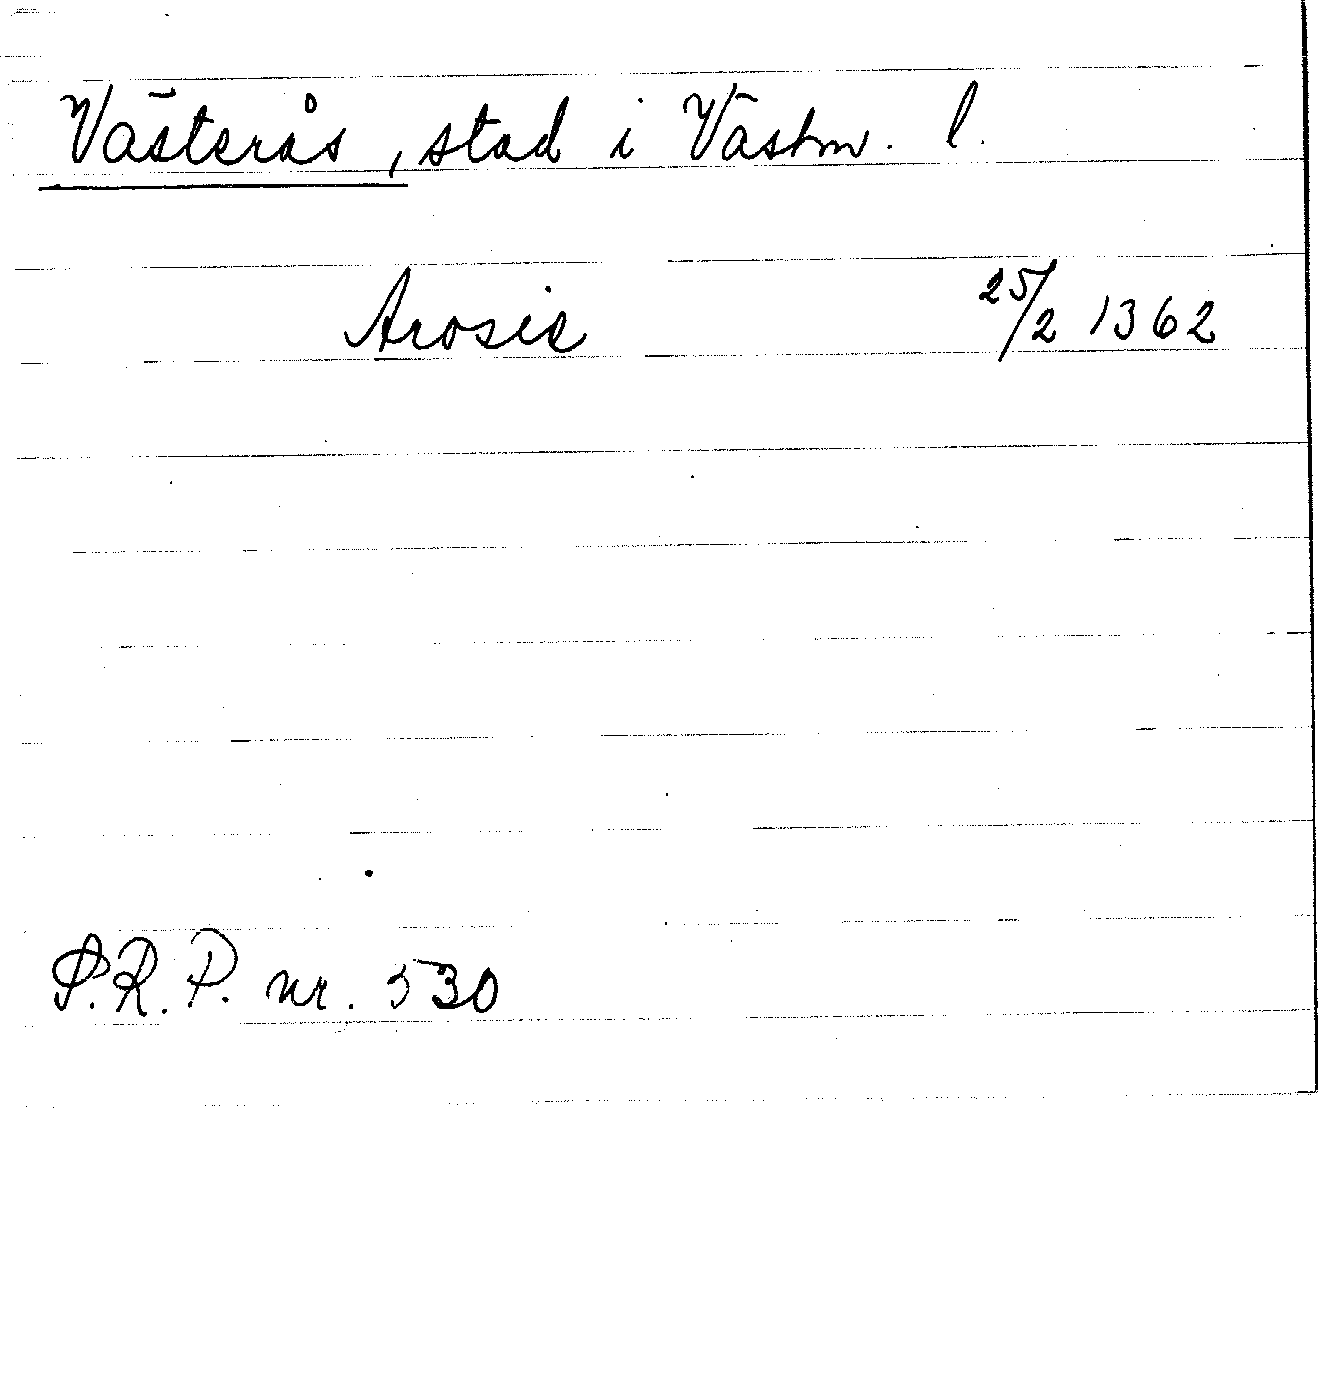 Västerås, stad i Västm. l.
Arosie 25/2 1362
S.R.P. nr. 530